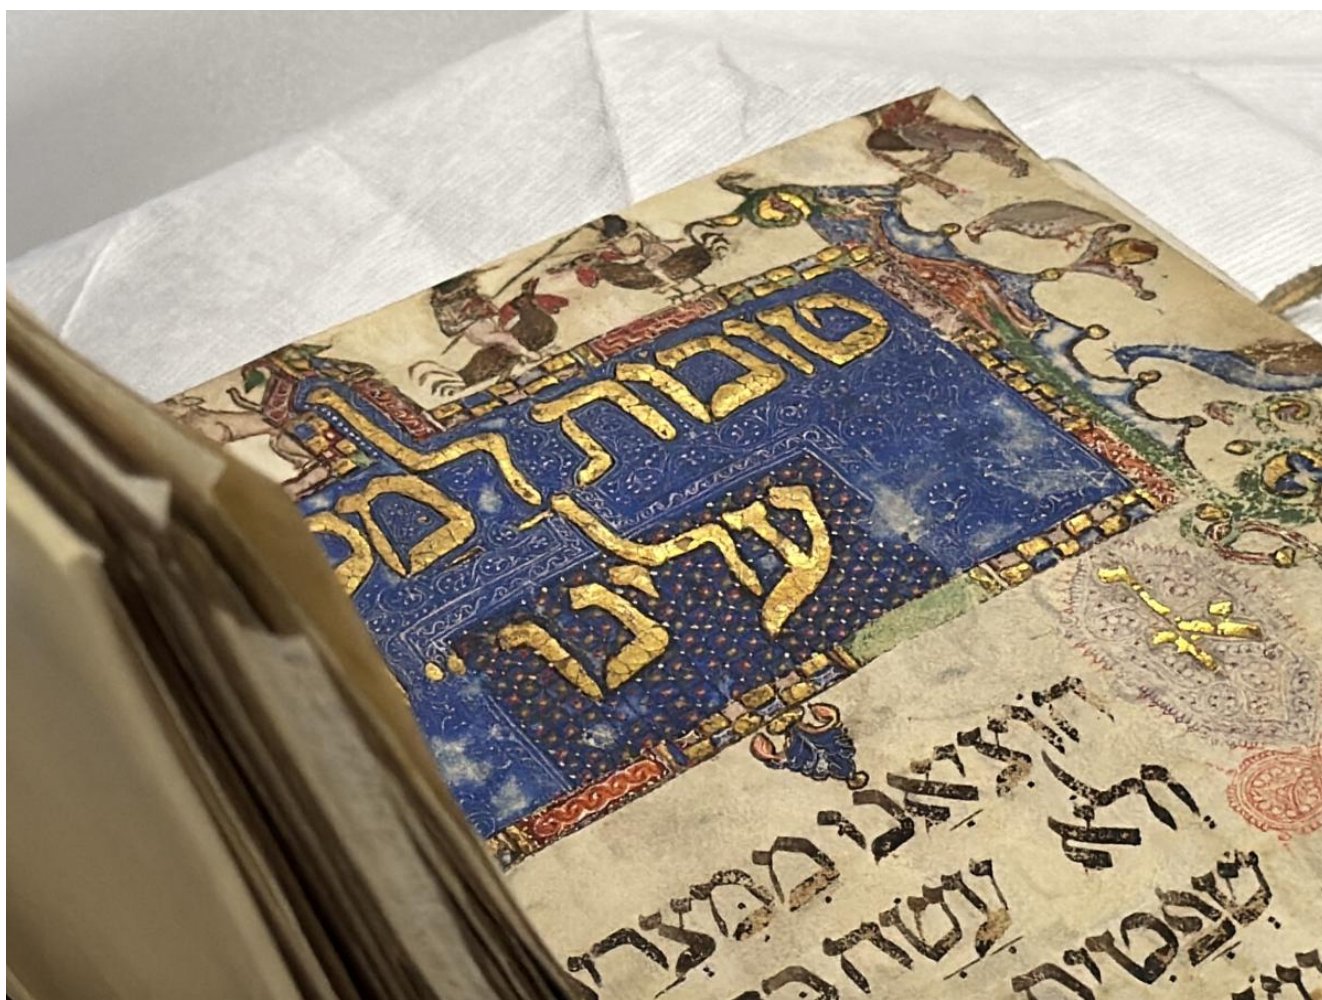 טובֹת למ
עלינו
הוֹצִיאָנוּ מִמִּצְרַי
וְלֹא עָשָׂה בָ
שְׁפָטִים